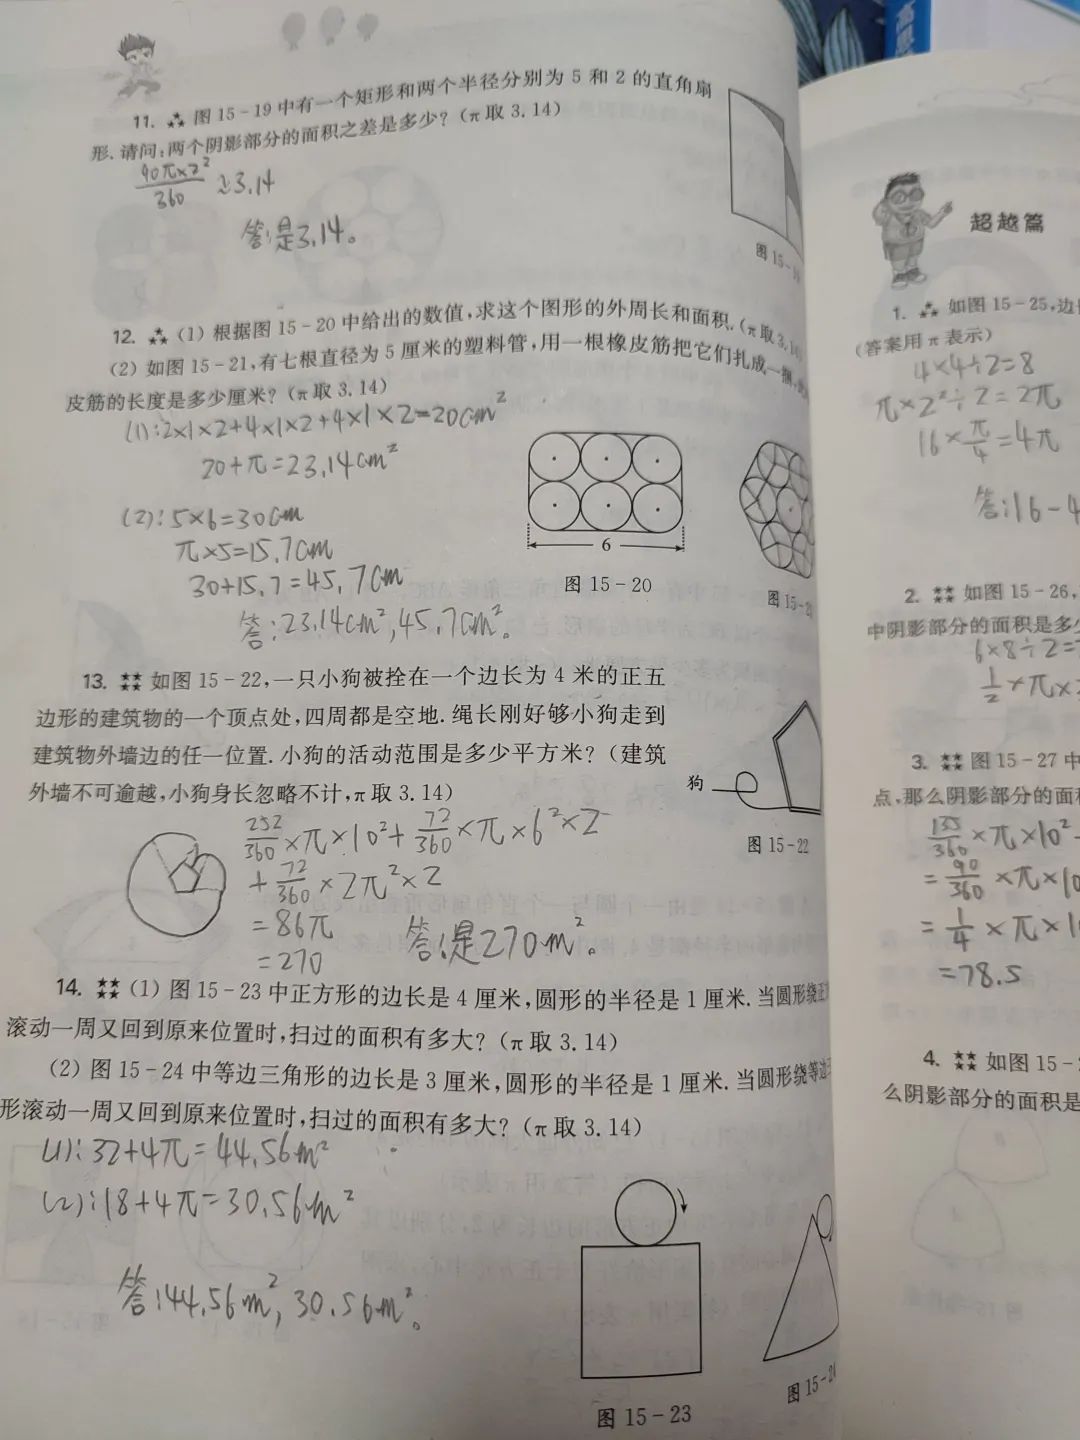 11. 图15-19中有一个矩形和两个半径分别为5和2的直角扇
形.请问:两个阴影部分的面积之差是多少?(π取3.14)
90π×2²/360 ≈3.14
答:是3.14。
图15-19
12. (1) 根据图15-20中给出的数值,求这个图形的外周长和面积.(π取3.14)
(2) 如图15-21,有七根直径为5厘米的塑料管,用一根橡皮筋把它们扎成一捆,
皮筋的长度是多少厘米?(π取3.14)
(1):2×1×2+4×1×2+4×1×2=20cm²
20+π=23.14cm²
(2):5×6=30cm
π×5=15.7cm
30+15.7=45.7cm
答:23.14cm²,45.7cm²。
6
图15-20
图15-21
13. 如图15-22,一只小狗被拴在一个边长为4米的正五
边形的建筑物的一个顶点处,四周都是空地.绳长刚好够小狗走到
建筑物外墙边的任一位置.小狗的活动范围是多少平方米?(建筑
外墙不可逾越,小狗身长忽略不计,π取3.14)
狗
图15-22
252/360×π×10²+72/360×π×6²×2
+72/360×2π²×2
=86π
=270
答:是270m²。
14. (1) 图15-23中正方形的边长是4厘米,圆形的半径是1厘米.当圆形绕正
滚动一周又回到原来位置时,扫过的面积有多大?(π取3.14)
(2) 图15-24中等边三角形的边长是3厘米,圆形的半径是1厘米.当圆形绕等边
形滚动一周又回到原来位置时,扫过的面积有多大?(π取3.14)
(1):32+4π=44.56m²
(2):18+4π=30.56m²
答:44.56m²,30.56m²。
图15-23
图15-24
超越篇
1. 如图15-25,边
(答案用π表示)
4×4÷2=8
π×2²÷2=2π
16×π/4=4π
答:16-4
2. 如图15-26,
中阴影部分的面积是多
6×8÷2=
1/2×π×
3. 图15-27中
点,那么阴影部分的面
×π×10²
=90/360×π×10
=1/4×π×1
=78.5
4. 如图15-
么阴影部分的面积是